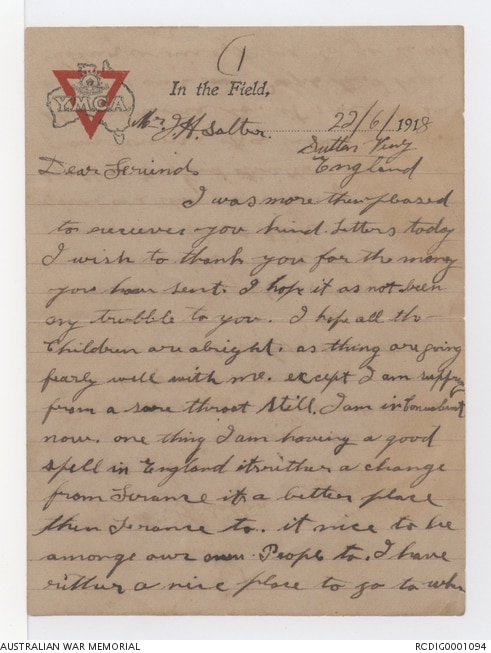 (1
YMCA
In the Field,
Mr J.H. Salter. 22/6/1918
Sutton Veny
England
Dear Freinds
I was more then pleased
to receive you kind letters today
I wish to thank you for the money
you have sent. I hope it as not been
any trubble to you. I hope all the
Children are alright. as thing are going
fearly well with me. except I am suffing
from a sore throat still. I am in
now. one thing I am having a good
spell in England its rither a change
from France it a better place
then France to. it nice to be
amonge our own People to. I have
rither a nice place to go to when
AUSTRALIAN WAR MEMORIAL
RCDIG0001094